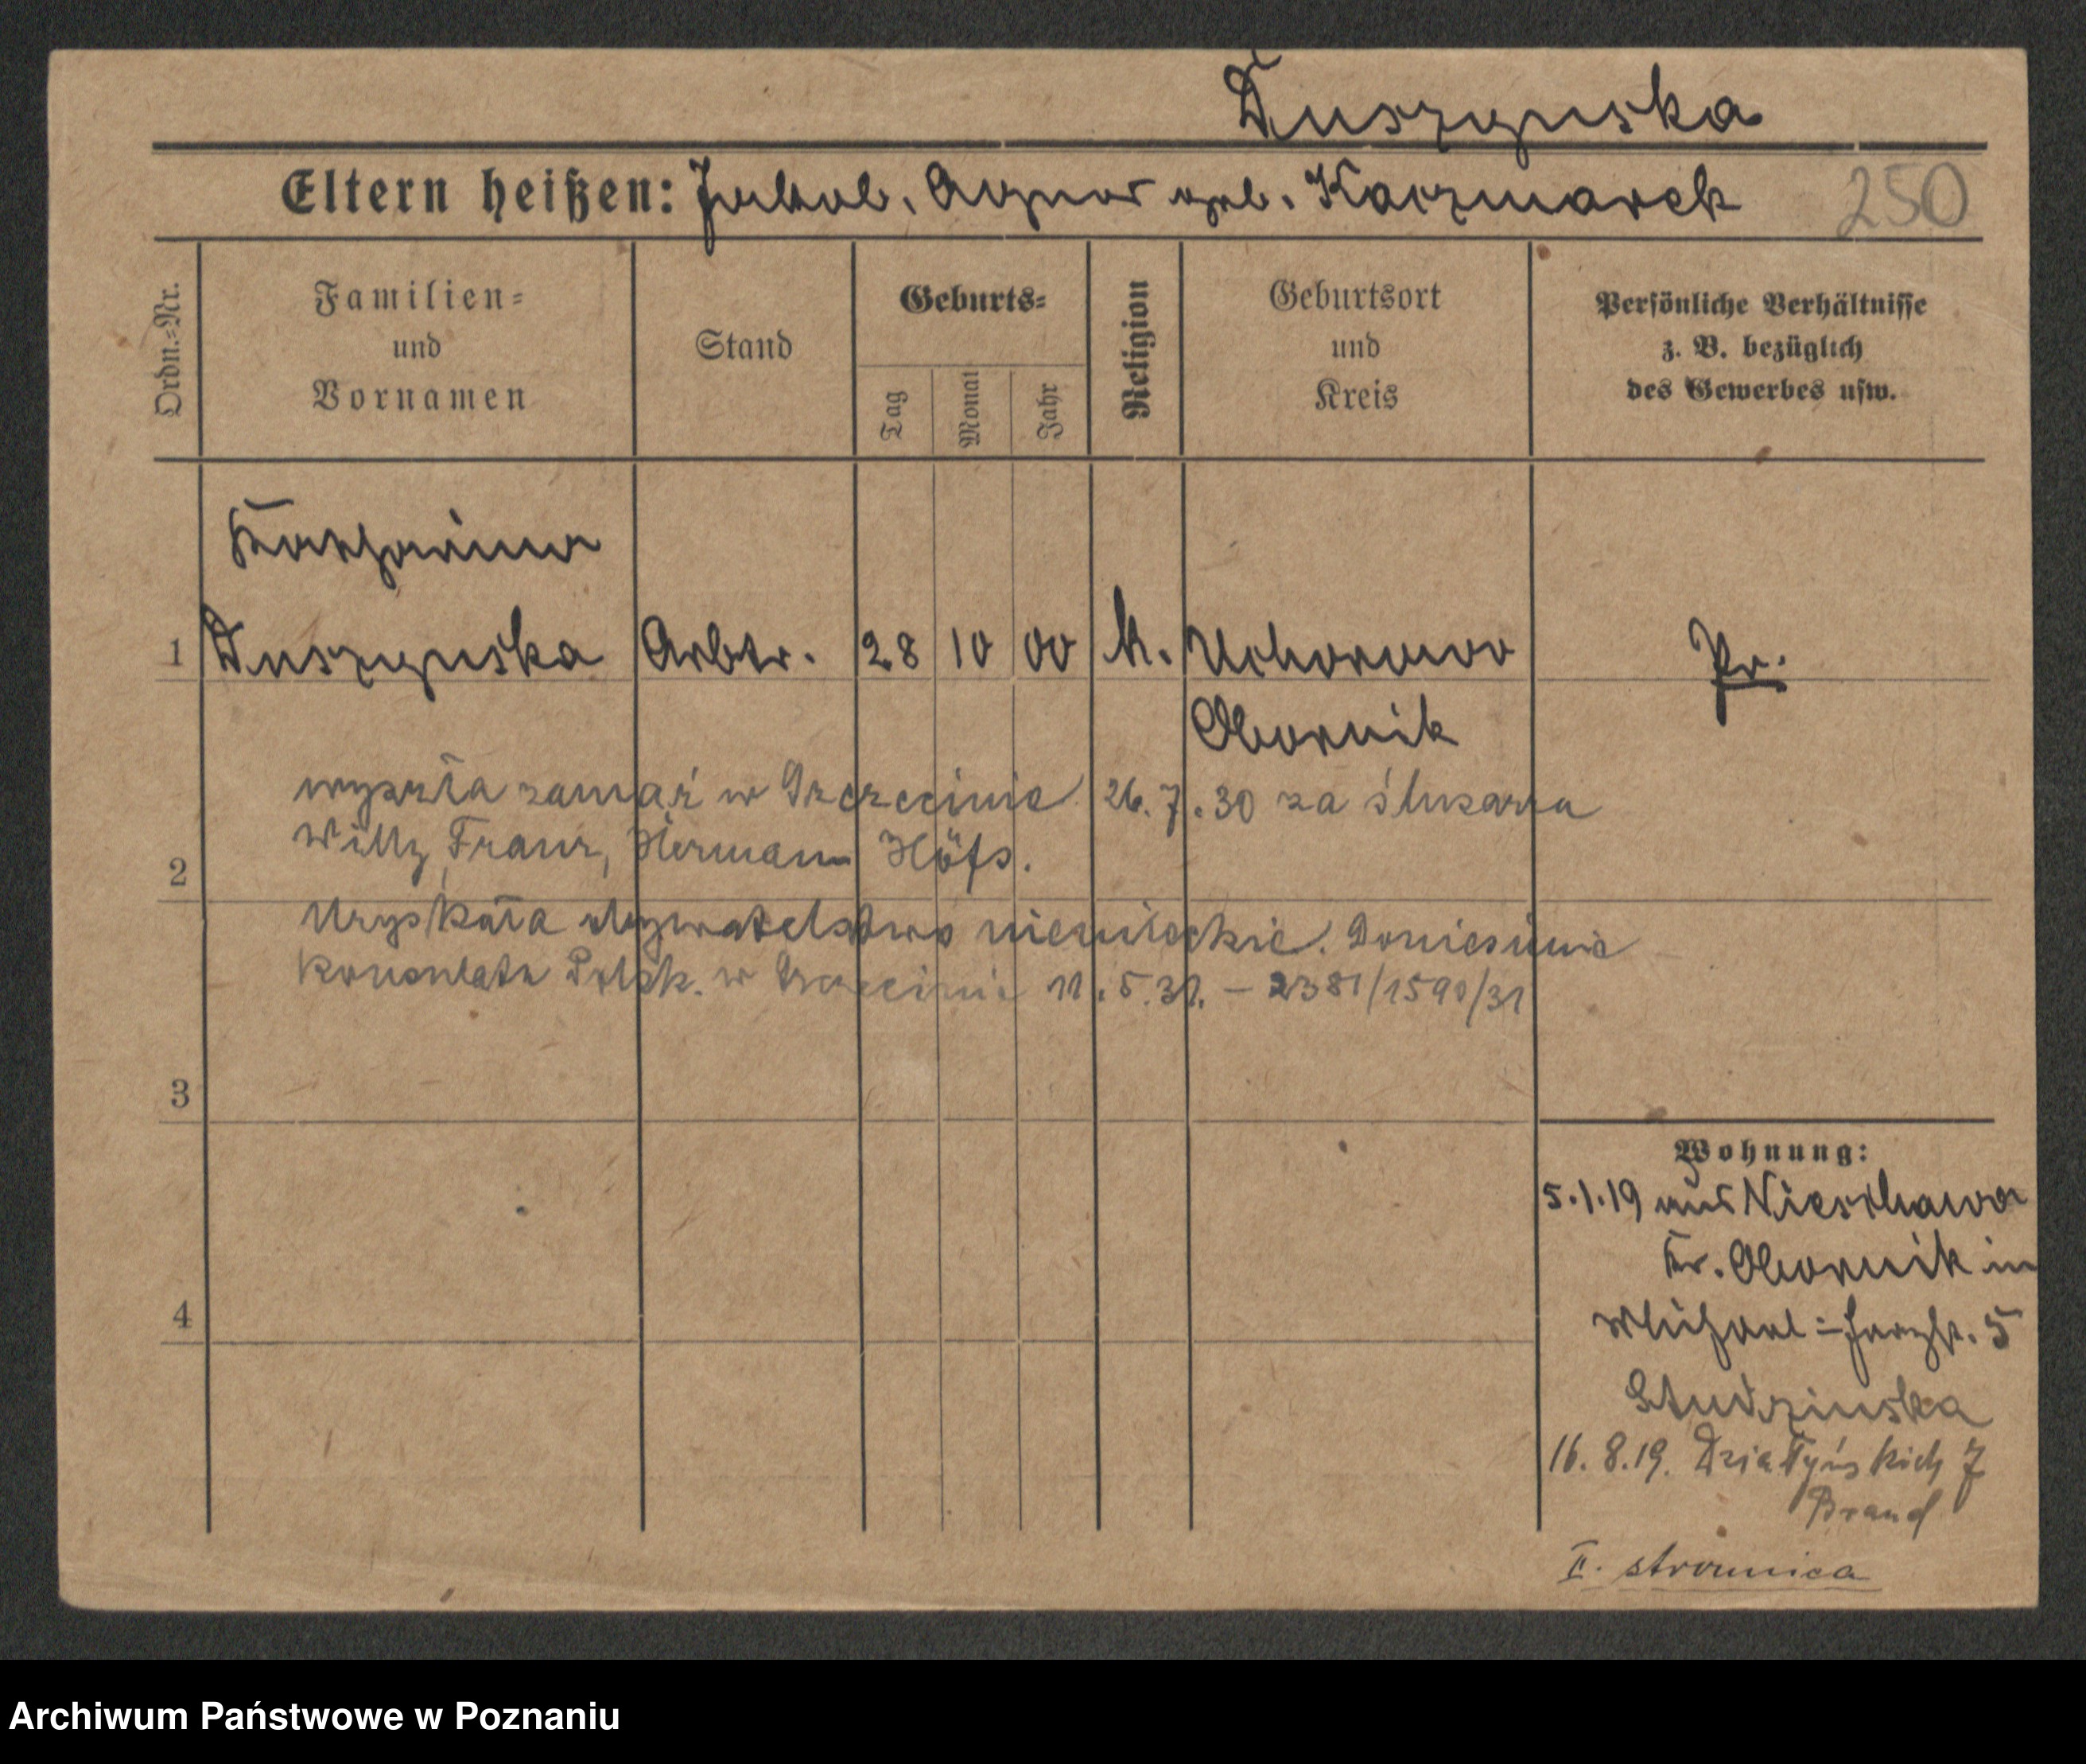 Duszynska
Eltern heißen: Jakob, Agnes geb. Kaczmarek 250
Ordn.=Nr.
Familien=
und
Vornamen
Stand
Geburts=
Tag
Monat
Jahr
Religion
Geburtsort
und
Kreis
Persönliche Verhältnisse
z. B. bezüglich
des Gewerbes usw.
Katharina
1 Duszynska Arbtr. 28 10 00 k. Uchorowo Pr.
Obornik
wyszła zamąż w Szczecinie 26.7.30 za ślusarza
Willy, Franz, Hermann Höfs.
2
Uzyskała obywatelstwo niemieckie. Doniesienie
Konsulatu Polsk. w Szczecinie 11.5.31. – 2381/1590/31
3
4
Wohnung:
5.1.19 aus Nieschawa
Kr. Obornik in
5
Studzinska
16.8.19. Działyńskich 7
Brand
II. stronnica
Archiwum Państwowe w Poznaniu